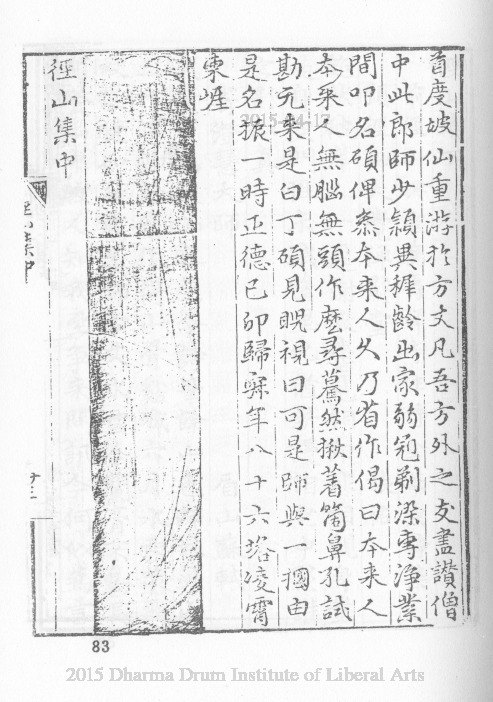 首度坡仙重游於方丈凡吾方外之友盡讃僧
中此郎師少頴異穉齡出家弱冠剃染專淨業
間叩名碩俾叅本来人久乃省作偈曰本来人
本来人無腦無頭作麽尋驀然揪著箇鼻孔試
勘元来是白丁碩見睨視曰可是師與一摑由
是名振一時正德己卯歸寂年八十六塔凌霄
東崕
徑山集中
83
2015 Dharma Drum Institute of Liberal Arts